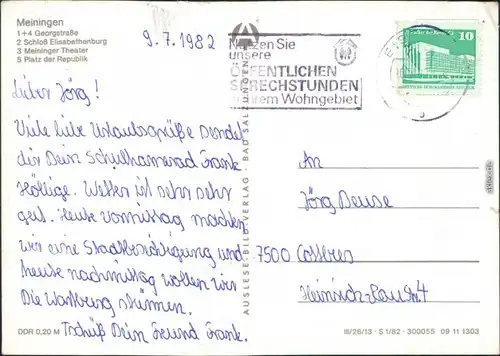 Meiningen
1+4 Georgstraße
2 Schloß Elisabethenburg
3 Meininger Theater
5 Platz der Republik
9.7.1982
Nutzen Sie
unsere
ÖFFENTLICHEN
SPRECHSTUNDEN
in Ihrem Wohngebiet
10
Lieber Jörg!
Viele liebe Urlaubsgrüße sendet
dir Dein Schulkammerad Frank
Wetter ist sehr sehr
gut. Heute vormittag machten
wir eine Stadtbesichtigung und
heute nachmittag wollen wir
Die Wartburg stürmen.
Tschüß Dein Freund Frank.
An
Jörg
7500 Cottbus
AUSLESE-BILD-VERLAG · BAD SALZUNGEN
DDR 0,20 M
III/26/13 · S 1/82 · 300055 09 11 1303